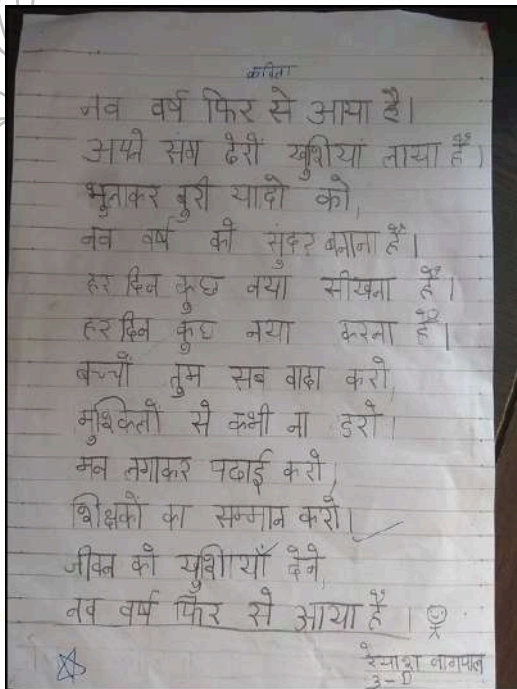 कविता
नव वर्ष फिर से आया है।
अपने संग ढेरों खुशियां लाया है।
भुलाकर बुरी यादो को,
नव वर्ष को सुंदर बनाना है।
हर दिन कुछ नया सीखना है।
हर दिन कुछ नया करना है।
बच्चों तुम सब वादा करो,
मुश्किलों से कभी ना डरो।
मन लगाकर पढाई करो,
शिक्षकों का सम्मान करो।
जीवन को खुशियाँ देने,
नव वर्ष फिर से आया है।
रेयांश नागपाल
3-D